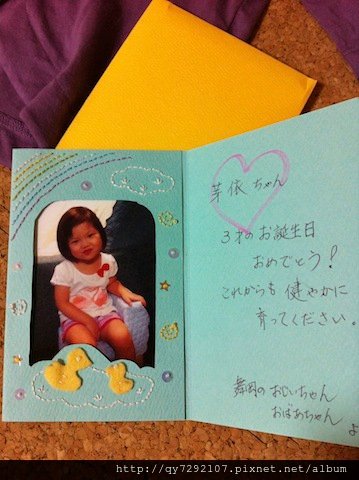 芽依ちゃん
3才のお誕生日
おめでとう!
これからも健やかに
育ってください。
舞岡のおじいちゃん
おばあちゃん
よ
http://qy7292107.pixnet.net/album